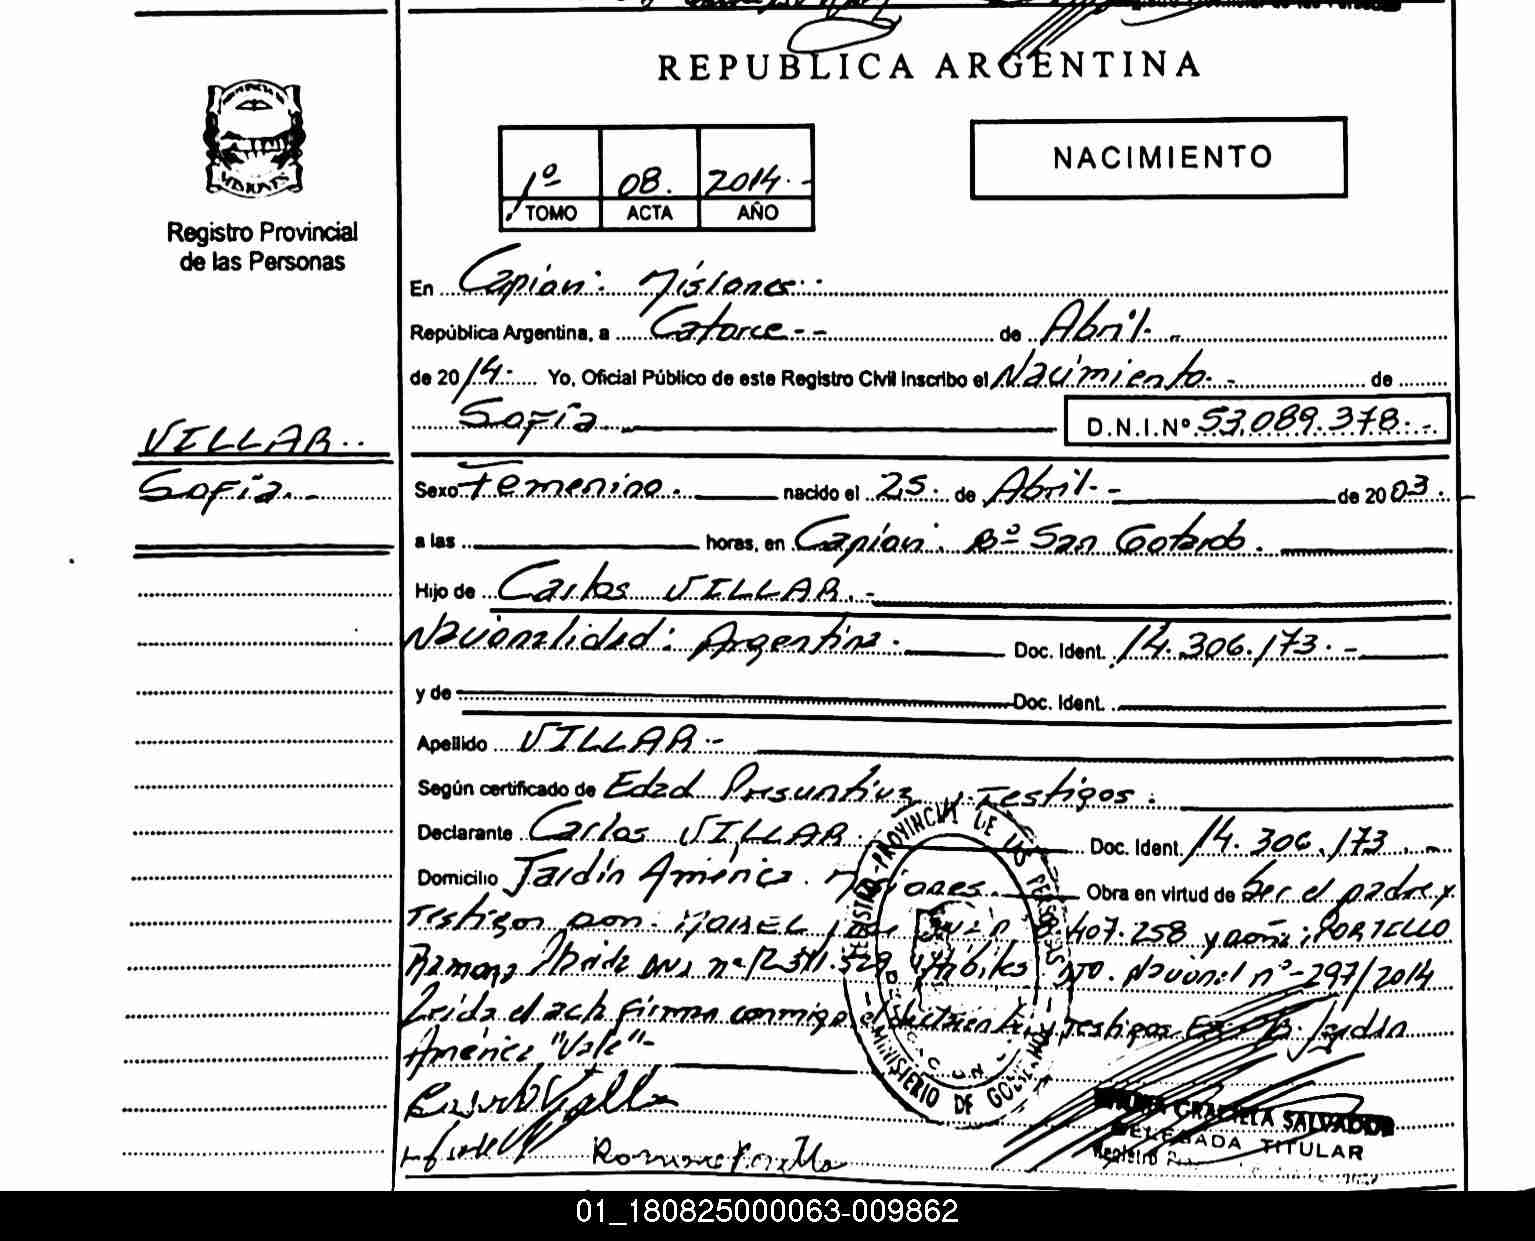 REPUBLICA ARGENTINA
NACIMIENTO
1º 08. 2014.-
TOMO ACTA AÑO
Registro Provincial
de las Personas
En Capiovi: Misiones:
República Argentina, a Catorce-- de Abril.-
de 2014.- Yo, Oficial Público de este Registro Civil Inscribo el Nacimiento.- de
Sofía. D.N.I.Nº 53.089.378.-
VILLAR..
Sofía.-
Sexo Femenino. nacido el 25. de Abril.- de 2003.
a las horas, en Capiovi: Bº San Gotardo.
Hijo de Carlos VILLAR.-
Nacionalidad: Argentina. Doc. Ident. 14.306.173.-
y de Doc. Ident.
Apellido VILLAR.-
Según certificado de Edad Presuntiva y Testigos.
Declarante Carlos VILLAR. Doc. Ident. 14.306.173.-
Domicilio Jardín América. Misiones. Obra en virtud de Ser el padre y
Testigos Don: 407.258 y doña: PORTILLO
Ramona DNI nº 12.311.529 nº 297/2014
Leída el acta firma conmigo el y Testigos Jardín
América "Vale"-
Romona Portillo
REGISTRO PROVINCIAL DE LAS PERSONAS
MINISTERIO DE GOBIERNO
GRACIELA SALVADOR
DELEGADA TITULAR
Registro
01_180825000063-009862